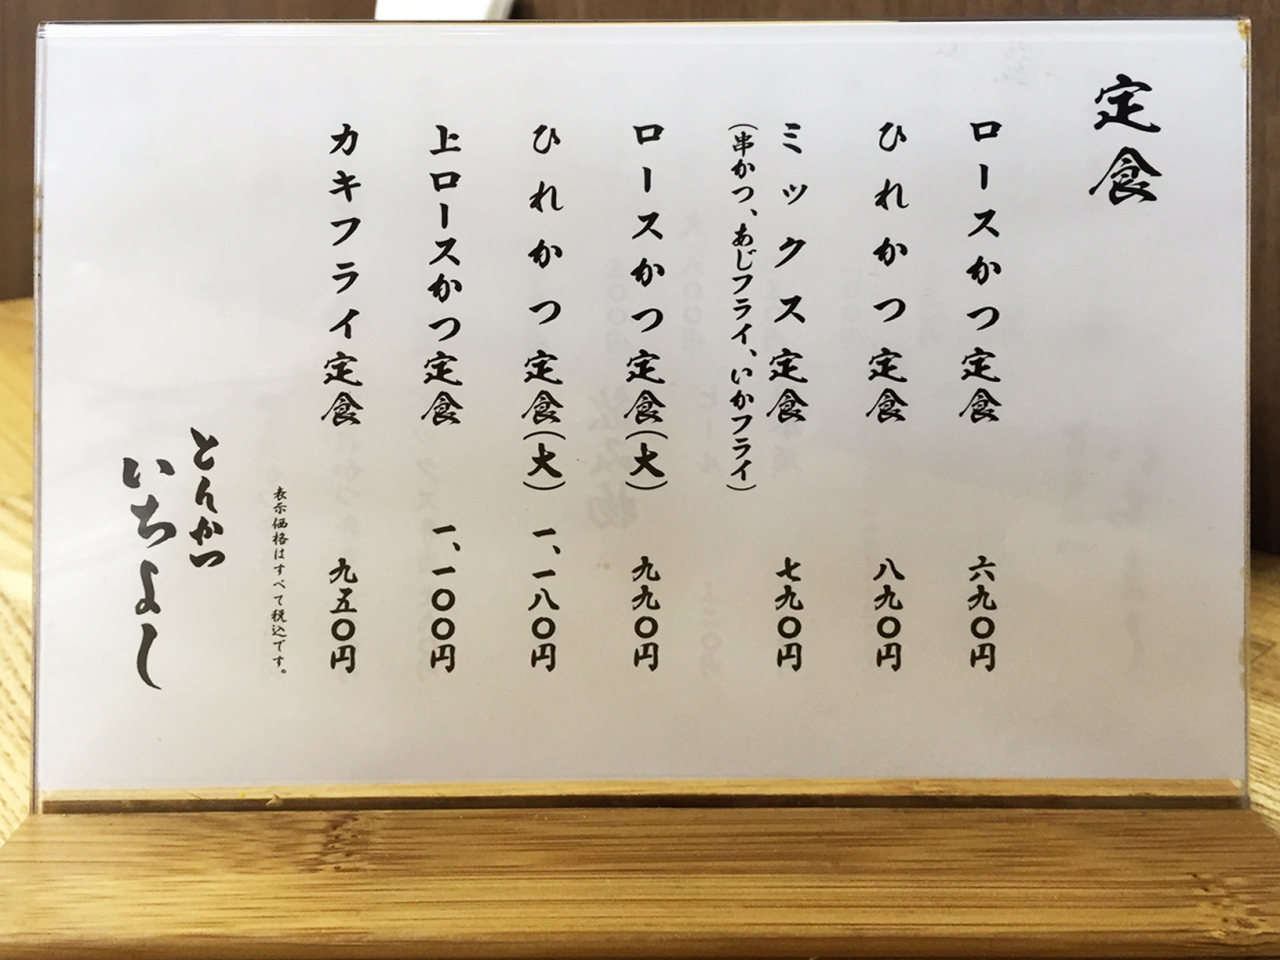 定食
ロースかつ定食 六九〇円
ひれかつ定食 八九〇円
ミックス定食 七九〇円
（串かつ、あじフライ、いかフライ）
ロースかつ定食（大） 九九〇円
ひれかつ定食（大） 一、一八〇円
上ロースかつ定食 一、一〇〇円
カキフライ定食 九五〇円
表示価格はすべて税込です。
とんかつ
いちよし